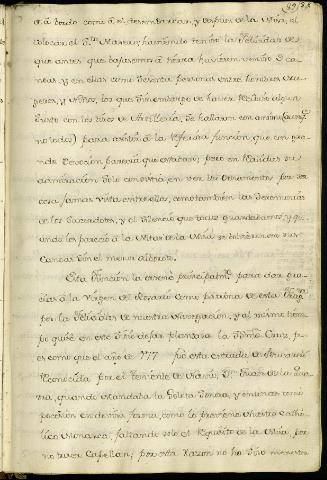 a bordo como a el desembarcar, y despues de la Misa, el
colocar el Sn. Marcos; haviendo tenido la felicidad de
que antes que bajasemos a tierra huviesen venido 8 ca-
noas, y en ellas como sesenta personas entre hombres mu-
geres, y Niños, los que sin embargo de haver recibido algun
susto con los tiros de Artilleria, se hallaron con animo (aunqe.
no todos) para asistir a la referida funcion, que con gran-
de devocion parecia que estaban; pero en realidad su
admiracion solo consistia en ver los ornamentos por ser
cosa jamas vista entre ellos, como tambien las ceremonias
de los Sacerdotes, y el silencio que todos guardabamos, y qu-
ando les pareció a la Mitad de la Misa se bolvieron en sus
Canoas sin el menor alboroto.
Esta funcion la ordené principalmte. para dar gra-
cias a la Virgen del Rosario como patrona de esta
por la felicidad de nuestra navegacion, y al mismo tiem-
po quise en este sitio dejar plantada la Sma. Cruz, pu-
es como que el año de 779 fue esta entrada de
reconocida por el Teniente de Navio Dn. Juan de la Qua-
dra, quando mandaba la Goleta Sonora, y entonces tomó
posesion en devida forma, como lo previene nuestro catho-
lico Monarca, faltando solo el requisito de la Misa, por
no traer Capellan; por esta razon no ha sido menester